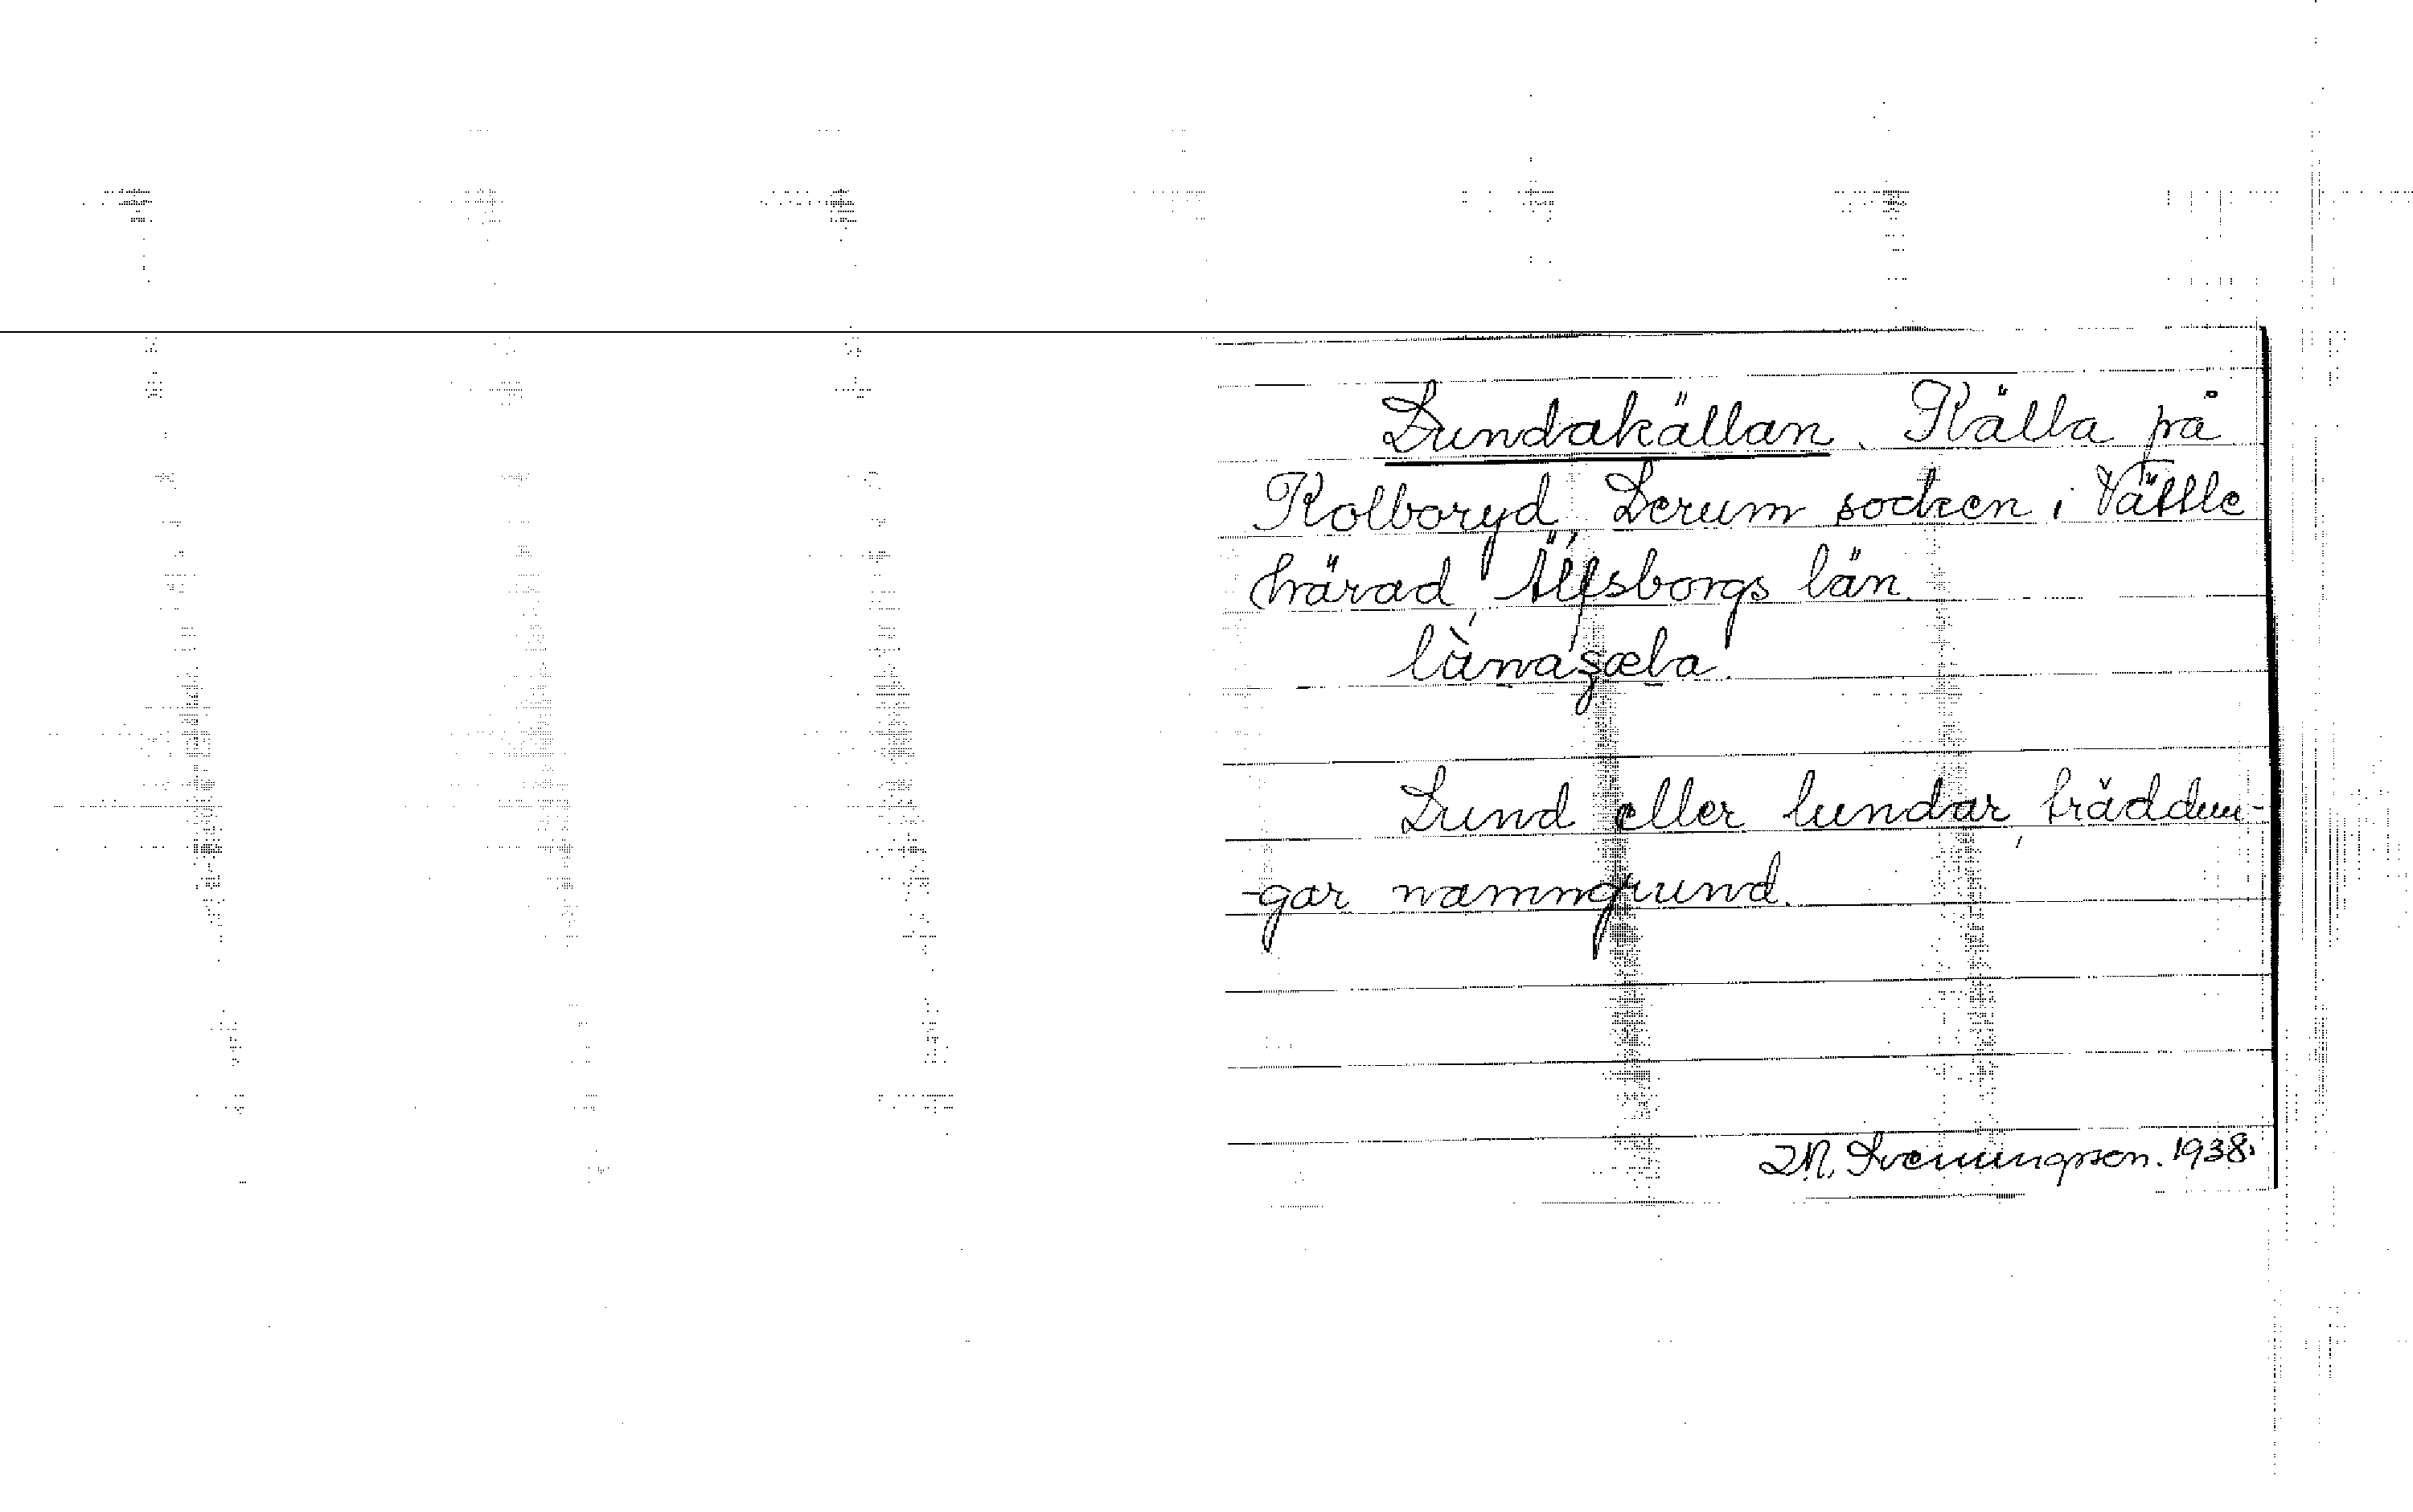 Lundakällan. Källa på
Kolboryd, Lerum socken i Vättle
härad, Älfsborgs län.
Lund eller lundar, träddun-
-gar namngrund.
J.N. Svenningsson. 1938.